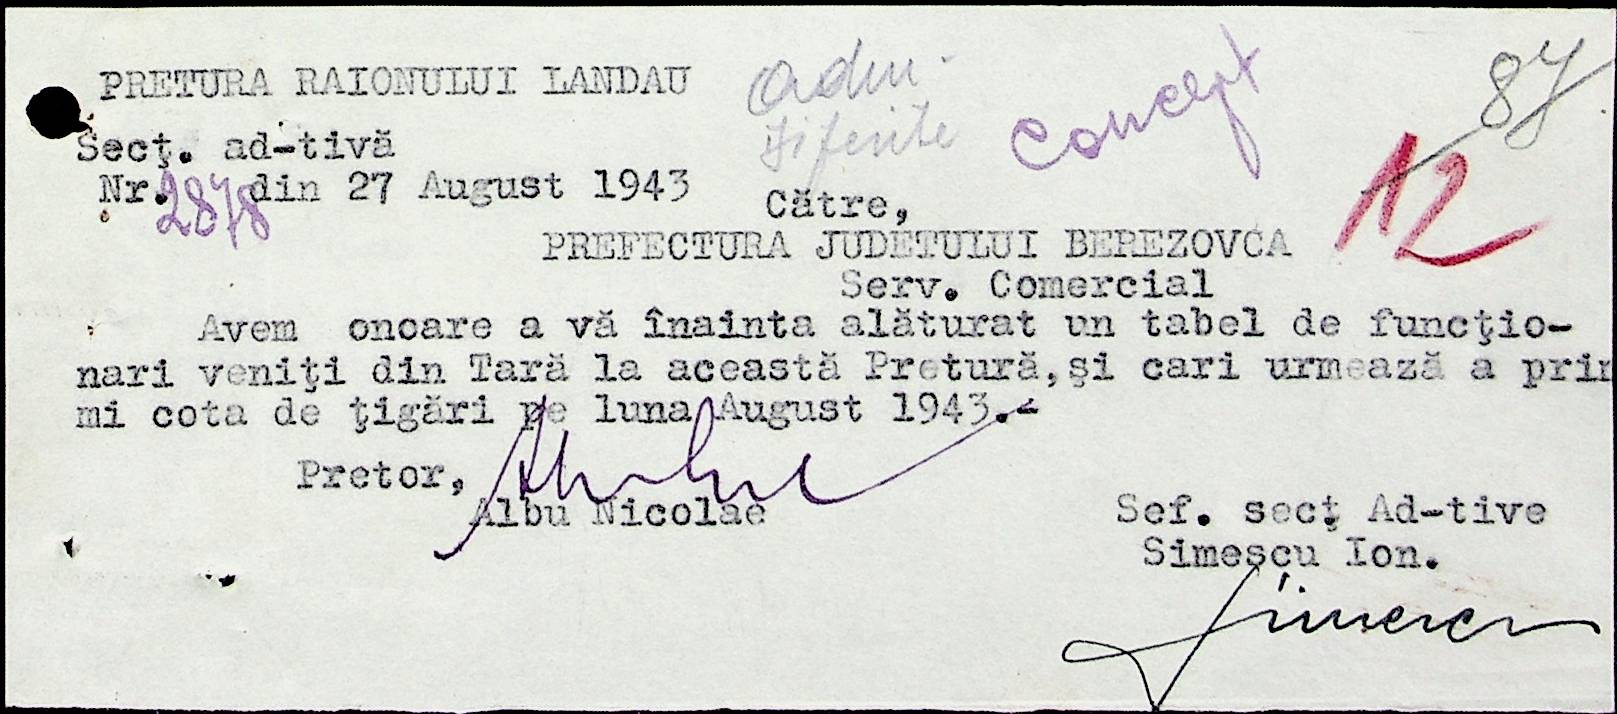 PRETURA RAIONULUI LANDAU
adm.
diferite
Concept
87
12
Secţ. ad-tivă
Nr. 2878 din 27 August 1943
Cătrе,
PREFECTURA JUDETULUI BEREZOVCA
Serv. Comercial
Avem onoare a vă înainta alăturat un tabel de funcţio-
nari veniţi din Tară la această Pretură,şi cari urmează a prim
mi cota de ţigări pe luna August 1943.-
Pretor,
Albu Nicolae
Sef. secţ Ad-tive
Simescu Ion.
Simescu